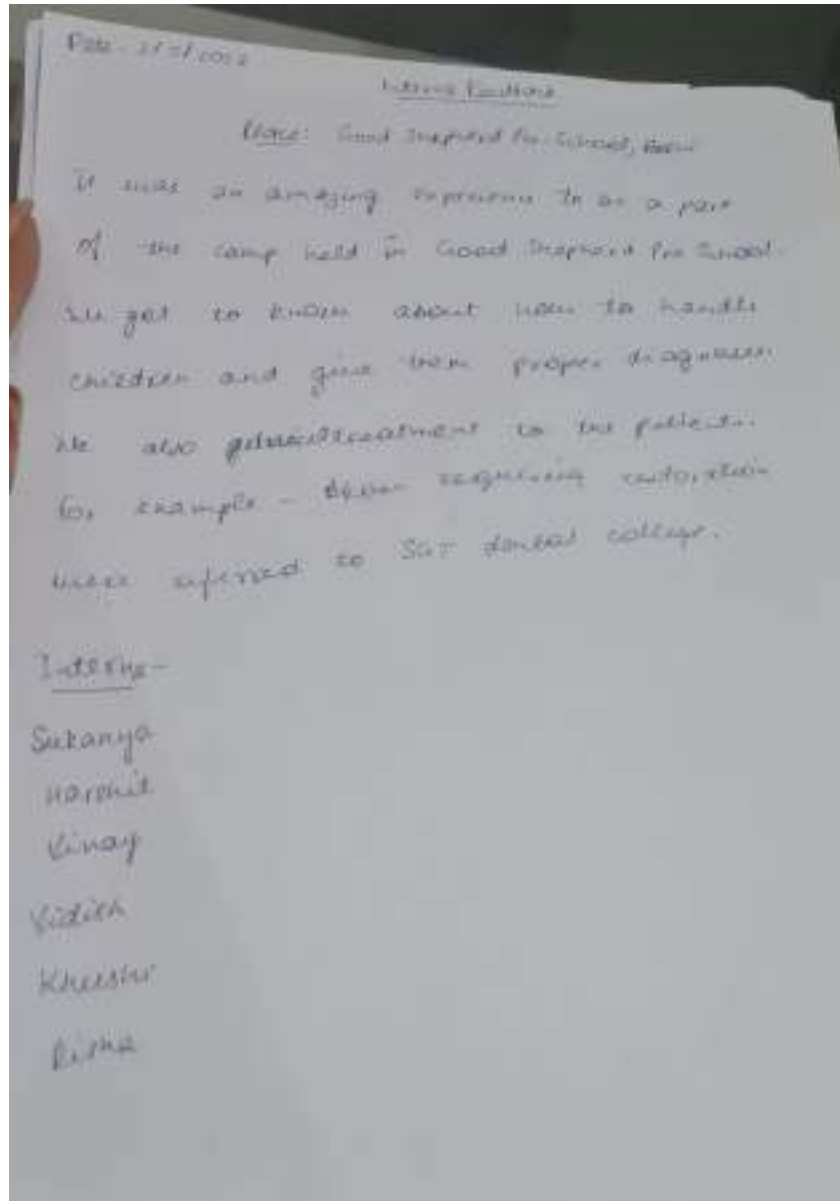 Date - 2022
Interns Feedback
Place: Good Shepherd Pre-School,
It was an amazing experience to be a part
of the camp held in Good Shepherd Pre School.
We got to know about how to handle
children and give them proper diagnosis.
We also treatment to the patients.
for example - requiring restoration
were referred to SGT dental college.
Interns -
Sukanya
Harshit
Vinay
Khushi